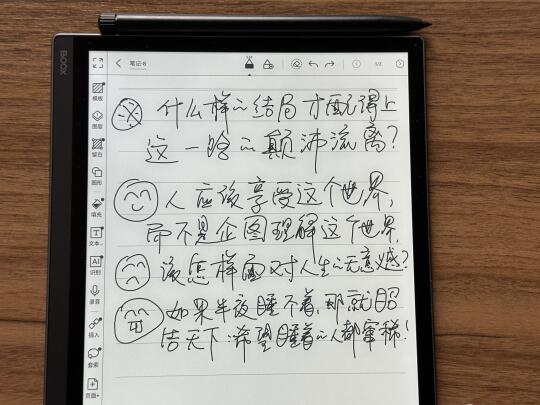 BOOX
笔记-6
1/2
模版
图层
留白
图形
填充
文本...
AI
识别
录音
插入
套索
页面+
什么样的结局才配得上
这一路的颠沛流离?
人应该享受这个世界,
而不是企图理解这个世界.
该怎样面对人生的无意义感?
如果半夜睡不着,那就昭
告天下:希望睡着的人都掌稀!